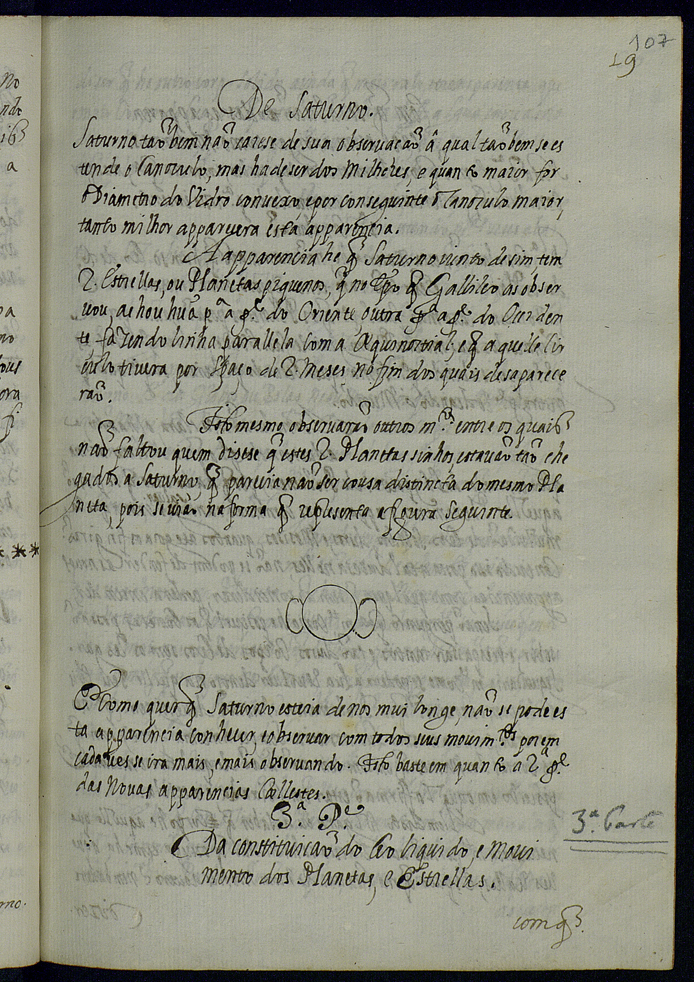 107
19
De Saturno.
Saturno taõbem naõ carese de sua observacaõ â qual taõbem se es
tende o Canoculo, mas ha de ser dos Milhores, e quanto maior for
o Diametro do Vidro convexo, e por conseguinte o Canoculo maior,
tanto milhor apparecera esta apparencia.
A apparencia he q̃ Saturno junto de sim tem
2. Estrellas, ou Planetas piquenos, q̃ no tp̃o q̃ Gallileo as obser
vou, achou hũa p.ª a p.te do Oriente outra p.ª a p.te do Occiden
te fazendo linha parallela com a Æquinoctial, e q̃ aquelle cir
culo tivera por espaço de 2 Meses no fim dos quais desaparece
raõ.
Isto mesmo observaraõ outros m.tos entre os quais
naõ faltou quem disese q̃ estes 2. Planetas sinhos estavaõ taõ che
gados a Saturno, q̃ parecia naõ ser cousa distincta do mesmo Pla
neta, pois se viaõ na forma q̃ representa a figura seguinte.
E como quer q̃ Saturno esteia de nos mui longe, naõ se pode es
ta apparencia conhecer, e observar com todos seus movim.tos porem
cada ves se ira mais, e mais observando. Isto baste em quanto â 2.ª p.te
das Novas apparencias Cœllestes.
3.ª P.te
3.ª Parte
Da constituicaõ do Ceo liquido, e Movi
mento dos Planetas, e Estrellas.
com q̃